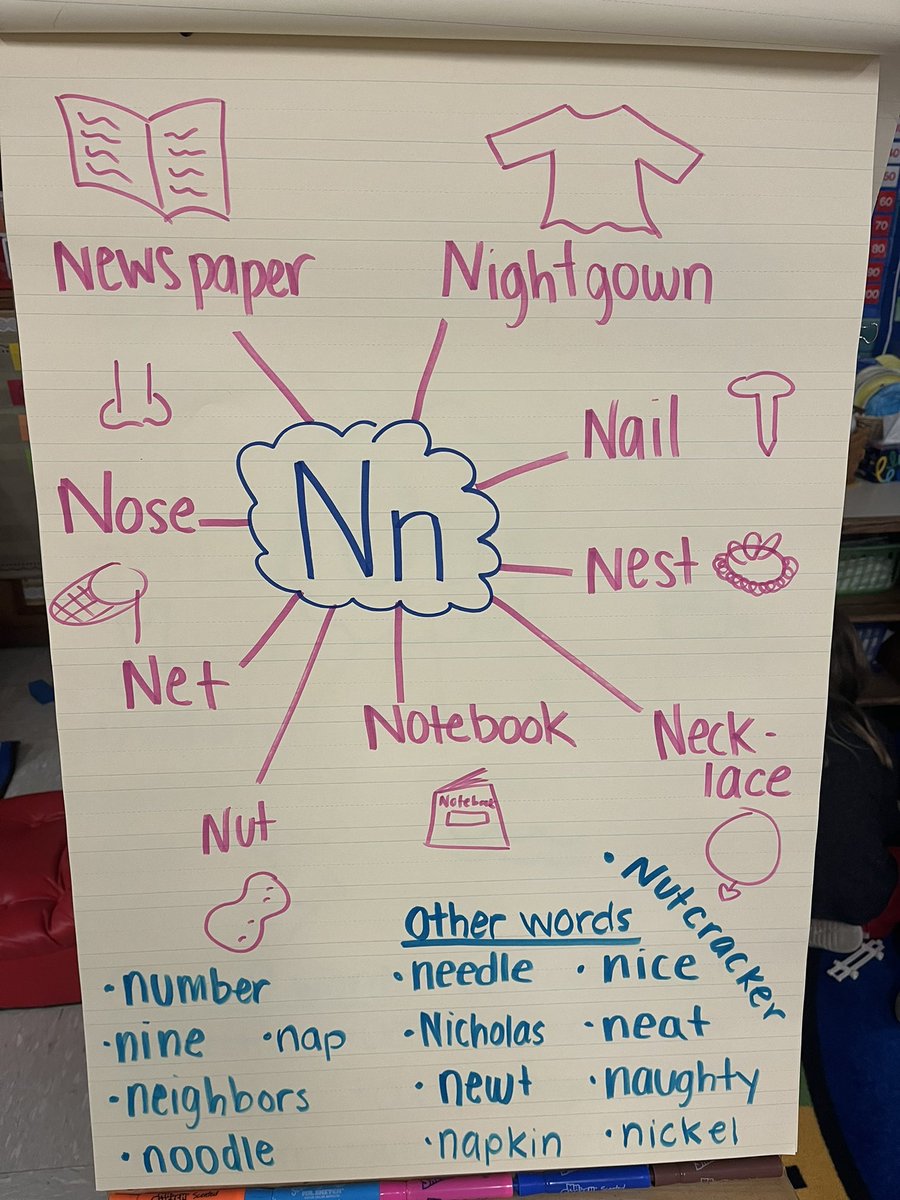 Newspaper
Nightgown
Nail
Nose
Nn
Nest
Net
Notebook
Neck-
lace
Notebook
Nut
• Nutcracker
Other words
• number
• needle
• nice
• nine
• nap
• Nicholas
• neat
• neighbors
• newt
• naughty
• noodle
• napkin
• nickel
60
70
80
90
100
Scented